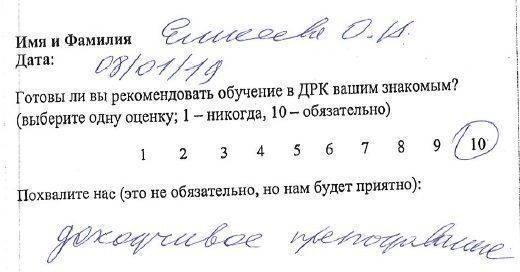 Имя и Фамилия Елисеева О.И.
Дата: 08/01/19
Готовы ли вы рекомендовать обучение в ДРК вашим знакомым?
(выберите одну оценку; 1 – никогда, 10 – обязательно)
1 2 3 4 5 6 7 8 9 10
Похвалите нас (это не обязательно, но нам будет приятно):
доходчивое преподавание